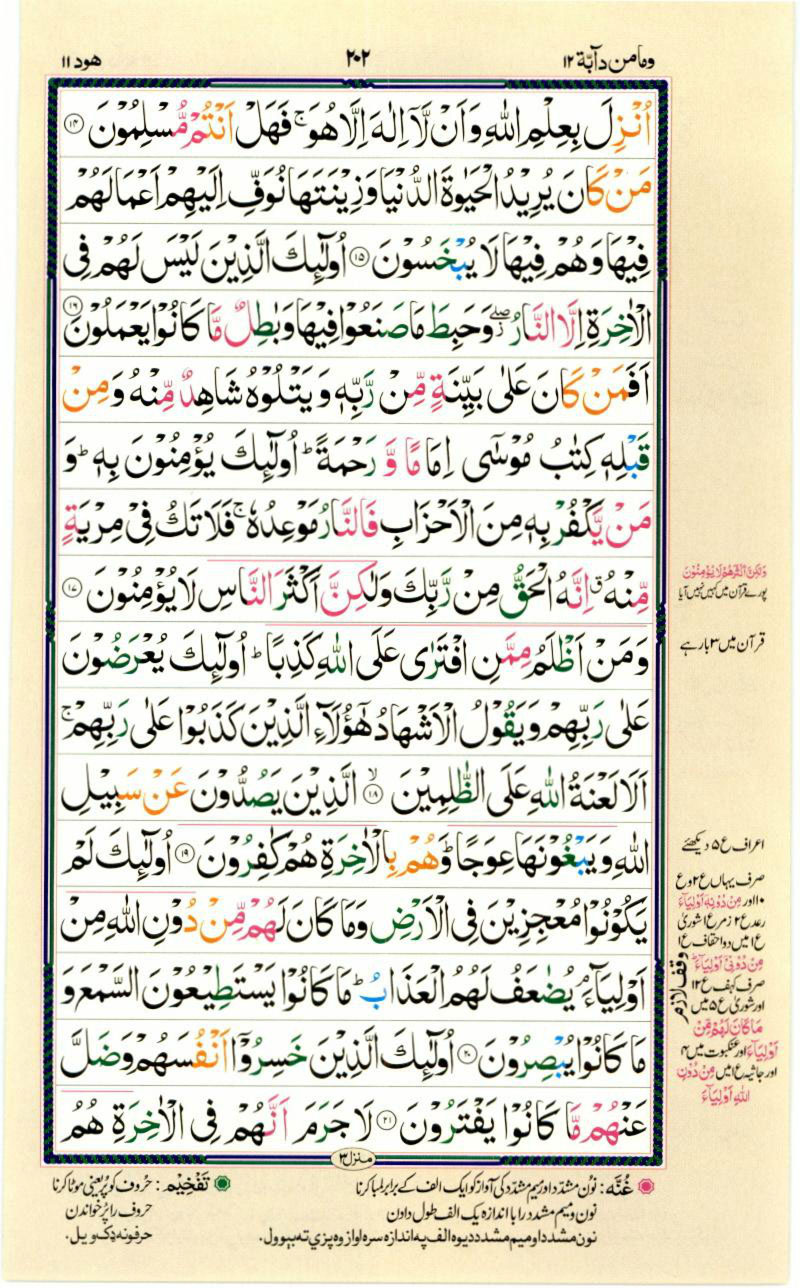 وما من دآبة ١٢
٢٠٢
هود ١١
اُنْزِلَ بِعِلْمِ اللّٰهِ وَاَنْ لَّاۤ اِلٰهَ اِلَّا هُوَ ۚ فَهَلْ اَنْتُمْ مُّسْلِمُوْنَ ﴿۱۴﴾
مَنْ كَانَ يُرِيْدُ الْحَيٰوةَ الدُّنْيَا وَزِيْنَتَهَا نُوَفِّ اِلَيْهِمْ اَعْمَالَهُمْ
فِيْهَا وَهُمْ فِيْهَا لَا يُبْخَسُوْنَ ﴿۱۵﴾ اُولٰٓئِكَ الَّذِيْنَ لَيْسَ لَهُمْ فِى
الْاٰخِرَةِ اِلَّا النَّارُ ۖ وَحَبِطَ مَا صَنَعُوْا فِيْهَا وَبٰطِلٌ مَّا كَانُوْا يَعْمَلُوْنَ ﴿۱۶﴾
اَفَمَنْ كَانَ عَلٰى بَيِّنَةٍ مِّنْ رَّبِّهٖ وَيَتْلُوْهُ شَاهِدٌ مِّنْهُ وَمِنْ
قَبْلِهٖ كِتٰبُ مُوْسٰٓى اِمَامًا وَّ رَحْمَةً ؕ اُولٰٓئِكَ يُؤْمِنُوْنَ بِهٖ ؕ وَ
مَنْ يَّكْفُرْ بِهٖ مِنَ الْاَحْزَابِ فَالنَّارُ مَوْعِدُهٗ ۚ فَلَا تَكُ فِىْ مِرْيَةٍ
مِّنْهُ ۗ اِنَّهُ الْحَقُّ مِنْ رَّبِّكَ وَلٰكِنَّ اَكْثَرَ النَّاسِ لَا يُؤْمِنُوْنَ ﴿۱۷﴾
وَمَنْ اَظْلَمُ مِمَّنِ افْتَرٰى عَلَى اللّٰهِ كَذِبًا ؕ اُولٰٓئِكَ يُعْرَضُوْنَ
عَلٰى رَبِّهِمْ وَيَقُوْلُ الْاَشْهَادُ هٰٓؤُلَآءِ الَّذِيْنَ كَذَبُوْا عَلٰى رَبِّهِمْ ۚ
اَلَا لَعْنَةُ اللّٰهِ عَلَى الظّٰلِمِيْنَ ﴿۱۸﴾ الَّذِيْنَ يَصُدُّوْنَ عَنْ سَبِيْلِ
اللّٰهِ وَيَبْغُوْنَهَا عِوَجًا ؕ وَهُمْ بِالْاٰخِرَةِ هُمْ كٰفِرُوْنَ ﴿۱۹﴾ اُولٰٓئِكَ لَمْ
يَكُوْنُوْا مُعْجِزِيْنَ فِى الْاَرْضِ وَمَا كَانَ لَهُمْ مِّنْ دُوْنِ اللّٰهِ مِنْ
اَوْلِيَآءَ ۘ يُضٰعَفُ لَهُمُ الْعَذَابُ ؕ مَا كَانُوْا يَسْتَطِيْعُوْنَ السَّمْعَ وَ
مَا كَانُوْا يُبْصِرُوْنَ ﴿۲۰﴾ اُولٰٓئِكَ الَّذِيْنَ خَسِرُوْۤا اَنْفُسَهُمْ وَضَلَّ
عَنْهُمْ مَّا كَانُوْا يَفْتَرُوْنَ ﴿۲۱﴾ لَا جَرَمَ اَنَّهُمْ فِى الْاٰخِرَةِ هُمُ
منزل ۳
پورے قرآن میں کہیں نہیں آیا
قرآن میں ۳ بار ہے
اعراف ع ۵ دیکھئے
صرف یہاں ع ۲ و ع
۱۰ اور مِنْ دُوْنِهٖ اَوْلِيَآءَ
رعد ع ۲ زمر ع ۱ شوریٰ
ع ۱ میں دو احقاف ع ۴
مِنْ دُوْنِىْ اَوْلِيَآءَ
صرف کہف ع ۱۲
اور شوریٰ ع ۵ میں
مَا كَانَ لَهُمْ مِّنْ
اَوْلِيَآءَ اور عنکبوت میں ۴
اور جاثیہ ع ۱ میں مِنْ دُوْنِ
اللّٰهِ اَوْلِيَآءَ
وقف لازم
غُنَّه: نون مشدد اور میم مشدد کی آواز کو ایک الف کے برابر لمبا کرنا
نون و میم مشدد را با اندازه یک الف طول دادن
نون مشدد او میم مشدد دیوه الف په اندازه سره اواز وه پزې ته بېوول.
تَفْخِيْم: حروف کو پُر یعنی موٹا کرنا
حروف را پُر خواندن
حرفونه ډک ویل.